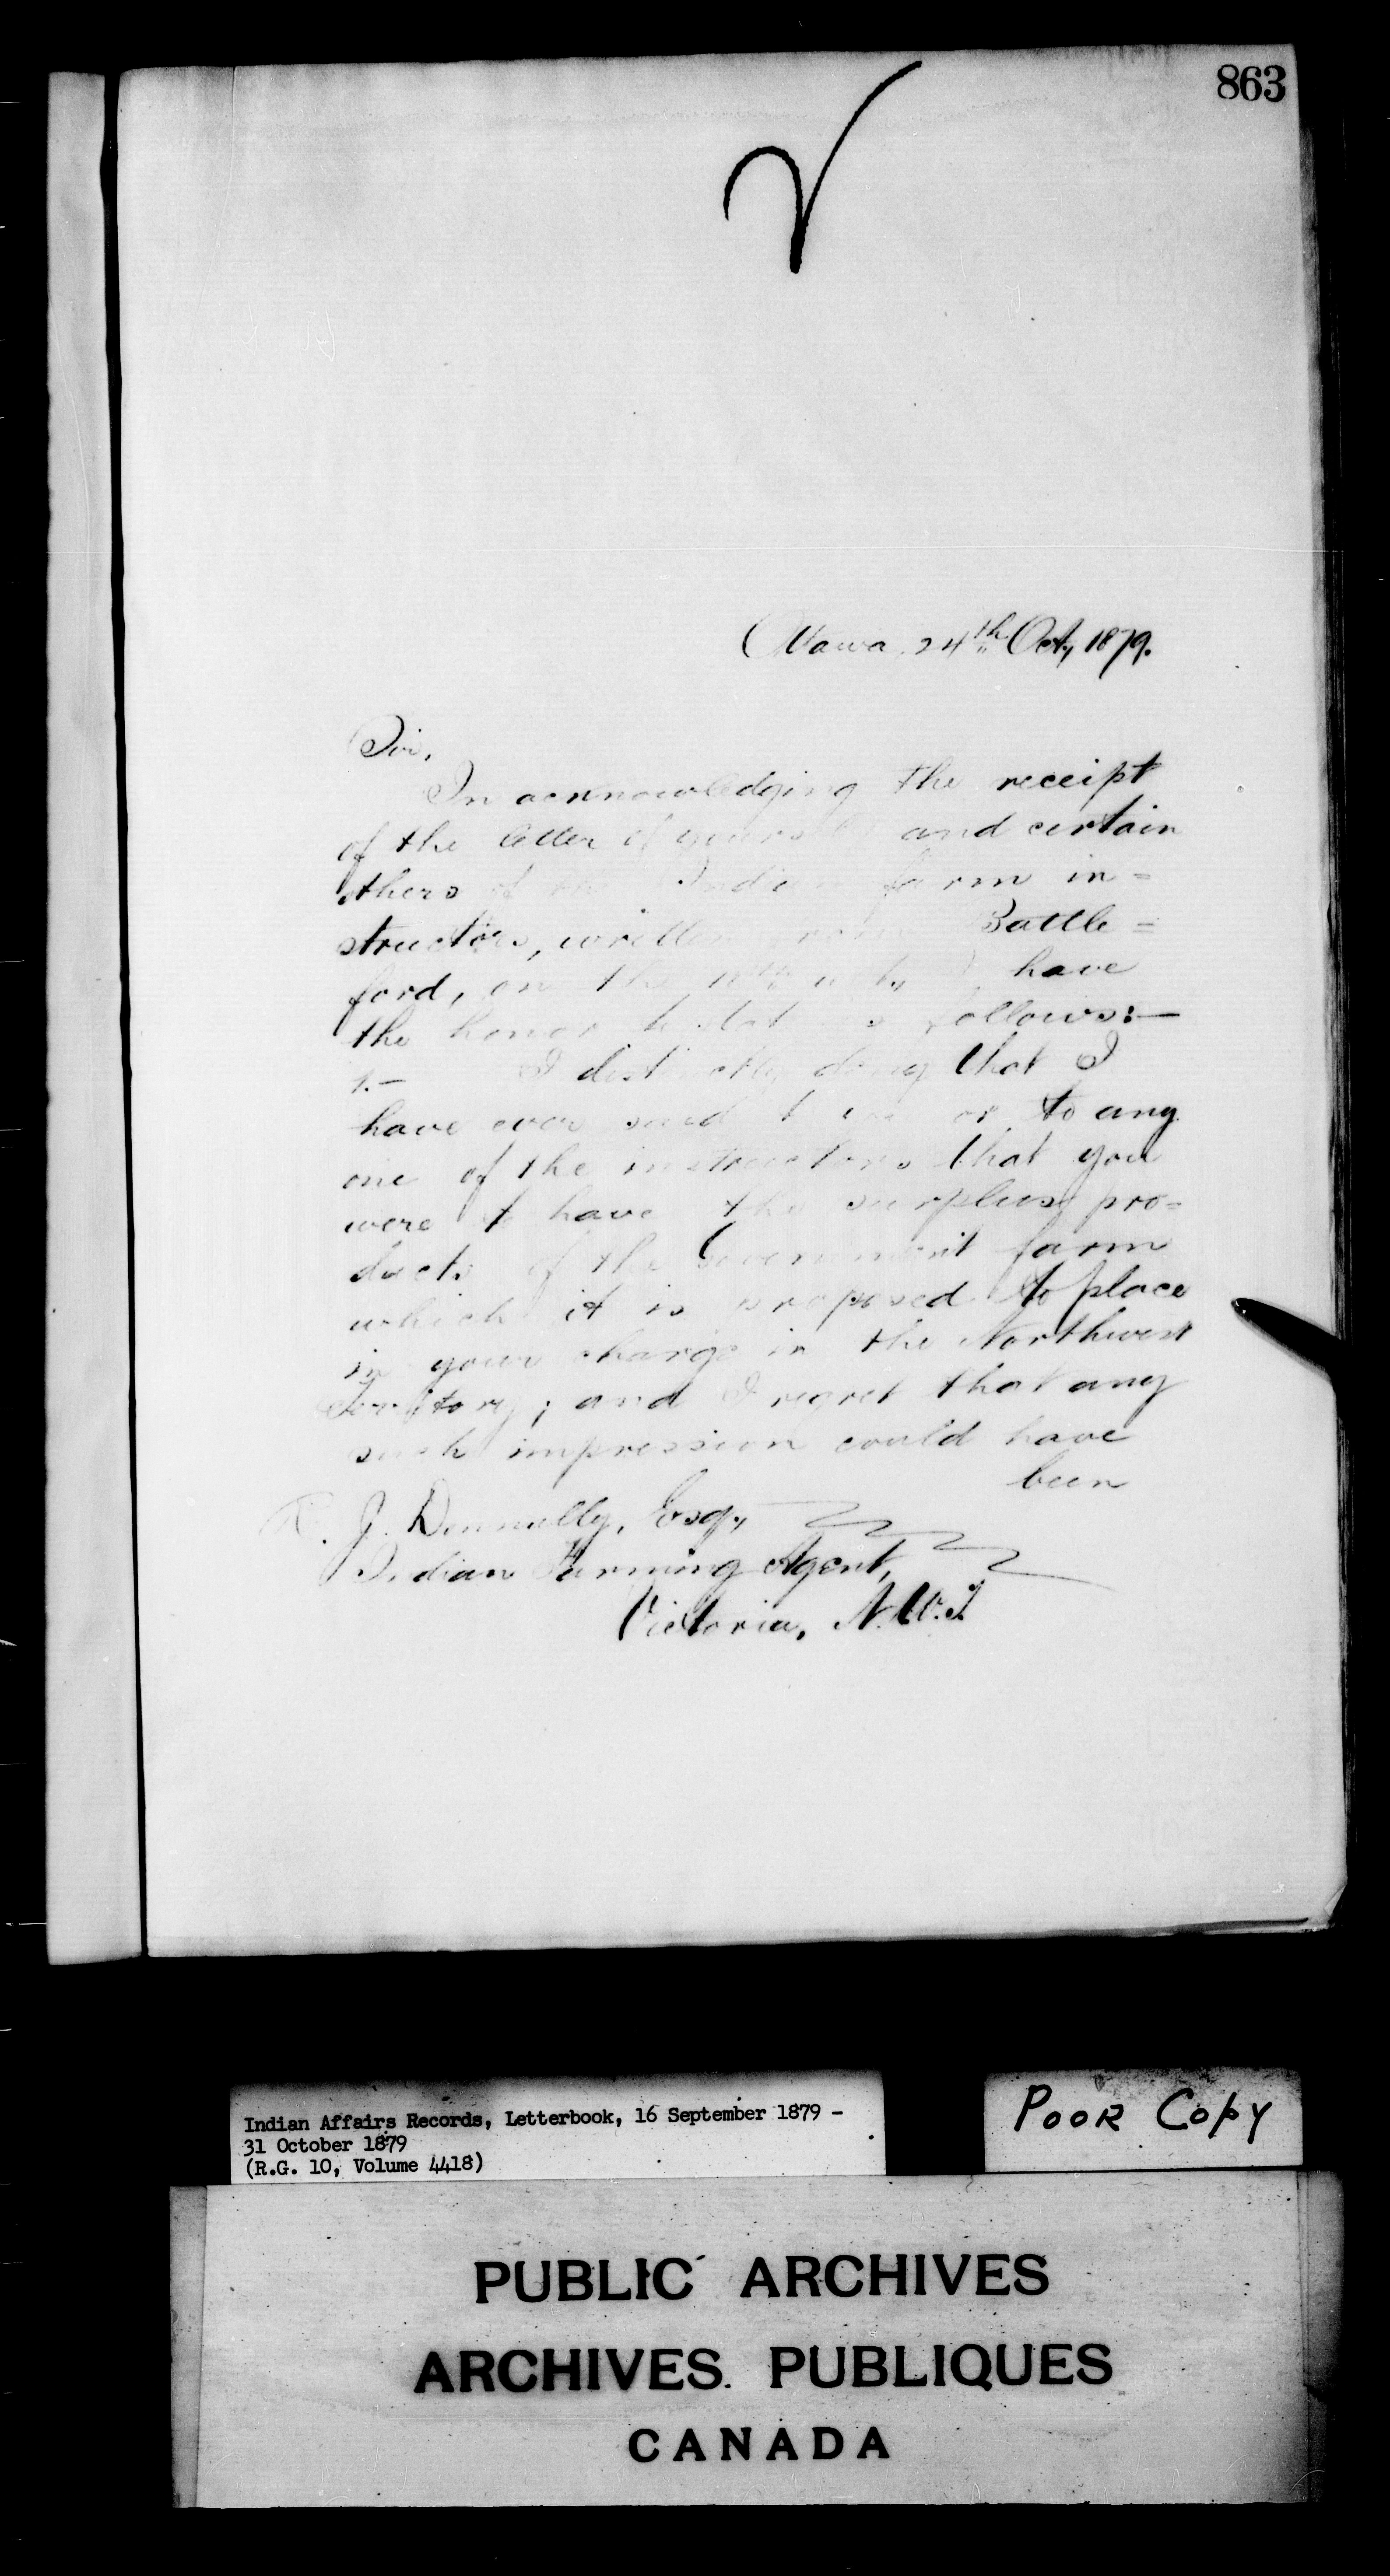 863
Ottawa, 24th Oct, 1879.
Sir,
In acknowledging the receipt
of the letter of yourself and certain
others of the Indian farm in=
structors, written from Battle=
ford, on the I have
the honor to state as follows:—
1.— I distinctly deny that I
have ever said to you or to any
one of the instructors that you
were to have the surplus pro=
ducts of the Government farm
which it is proposed to place
in your charge in the Northwest
Territory; and I regret that any
such impression could have
been
J. Donnelly, Esq.,
Indian Farming Agent,
Victoria, N.W.T.
Indian Affairs Records, Letterbook, 16 September 1879 -
31 October 1879
(R.G. 10, Volume 4418)
POOR COPY
PUBLIC ARCHIVES
ARCHIVES PUBLIQUES
CANADA